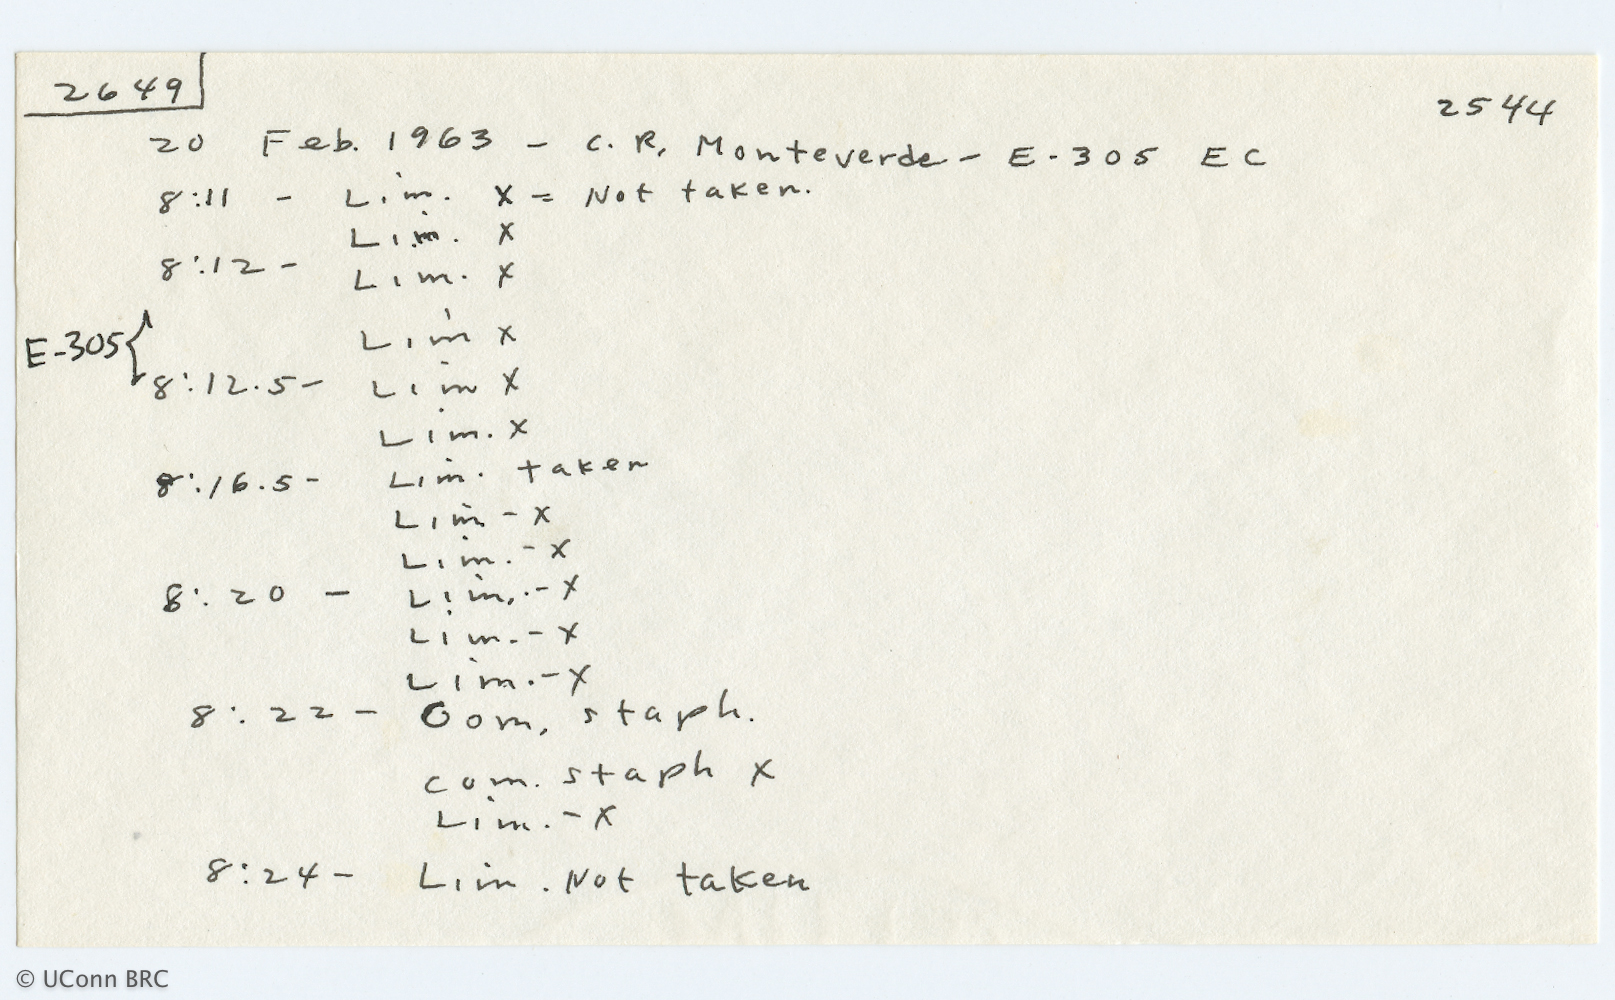 2649
2544
20 Feb. 1963 - C. R. Monteverde - E-305 EC
8:11 - Lim. X = Not taken.
Lim. X
8:12 - Lim. X
Lim X
E-305 {
8:12.5 - Lim X
Lim. X
8:16.5 - Lim. taken
Lim - X
Lim. - X
8:20 - Lim. - X
Lim. - X
Lim. - X
8:22 - Com. staph.
com. staph X
Lim. - X
8:24 - Lim. Not taken
© UConn BRC